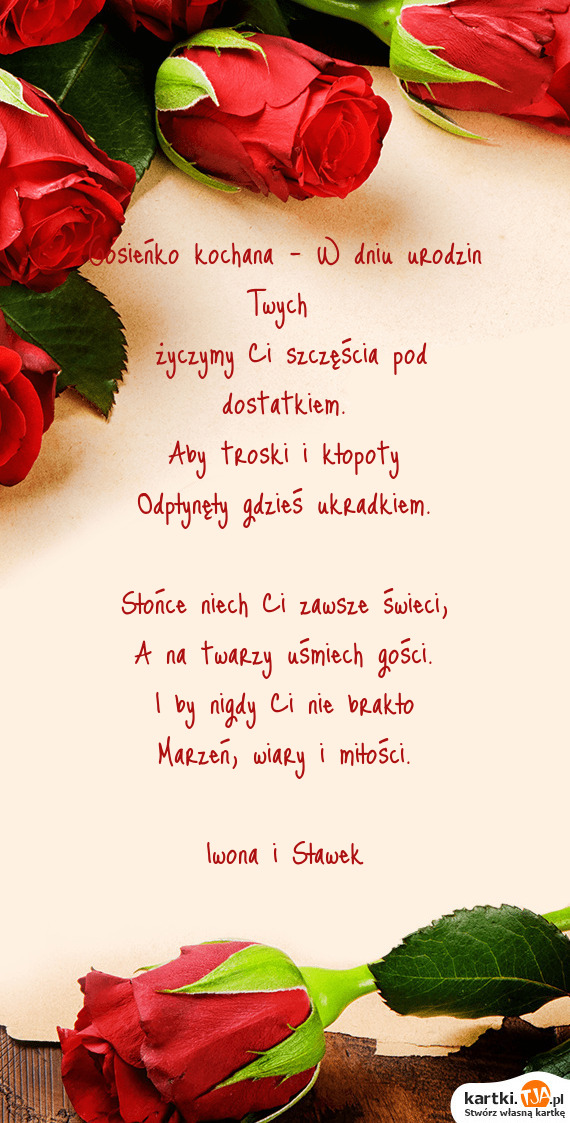 kochana - W dniu urodzin
Twych
życzymy Ci szczęścia pod
dostatkiem.
Aby troski i kłopoty
Odpłynęły gdzieś ukradkiem.
Słońce niech Ci zawsze świeci,
A na twarzy uśmiech gości.
I by nigdy Ci nie brakło
Marzeń, wiary i miłości.
Iwona i Sławek
kartki.TJA.pl
Stwórz własną kartkę